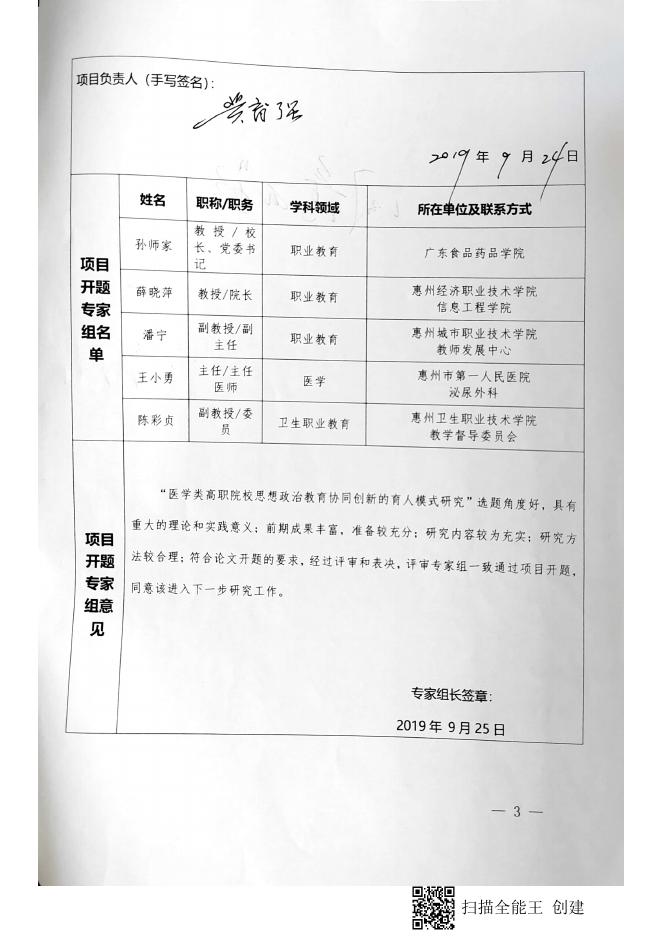 项目负责人（手写签名）：
2019 年 9 月 24 日
项目
开题
专家
组名
单
姓名 职称/职务 学科领域 所在单位及联系方式
孙师家 教授/校长、党委书记 职业教育 广东食品药品学院
薛晓萍 教授/院长 职业教育 惠州经济职业技术学院
信息工程学院
潘宁 副教授/副主任 职业教育 惠州城市职业技术学院
教师发展中心
王小勇 主任/主任医师 医学 惠州市第一人民医院
泌尿外科
陈彩贞 副教授/委员 卫生职业教育 惠州卫生职业技术学院
教学督导委员会
项目
开题
专家
组意
见
“医学类高职院校思想政治教育协同创新的育人模式研究”选题角度好，具有
重大的理论和实践意义；前期成果丰富，准备较充分；研究内容较为充实；研究方
法较合理；符合论文开题的要求，经过评审和表决，评审专家组一致通过项目开题，
同意该进入下一步研究工作。
专家组长签章：
2019 年 9 月 25 日
— 3 —
扫描全能王 创建